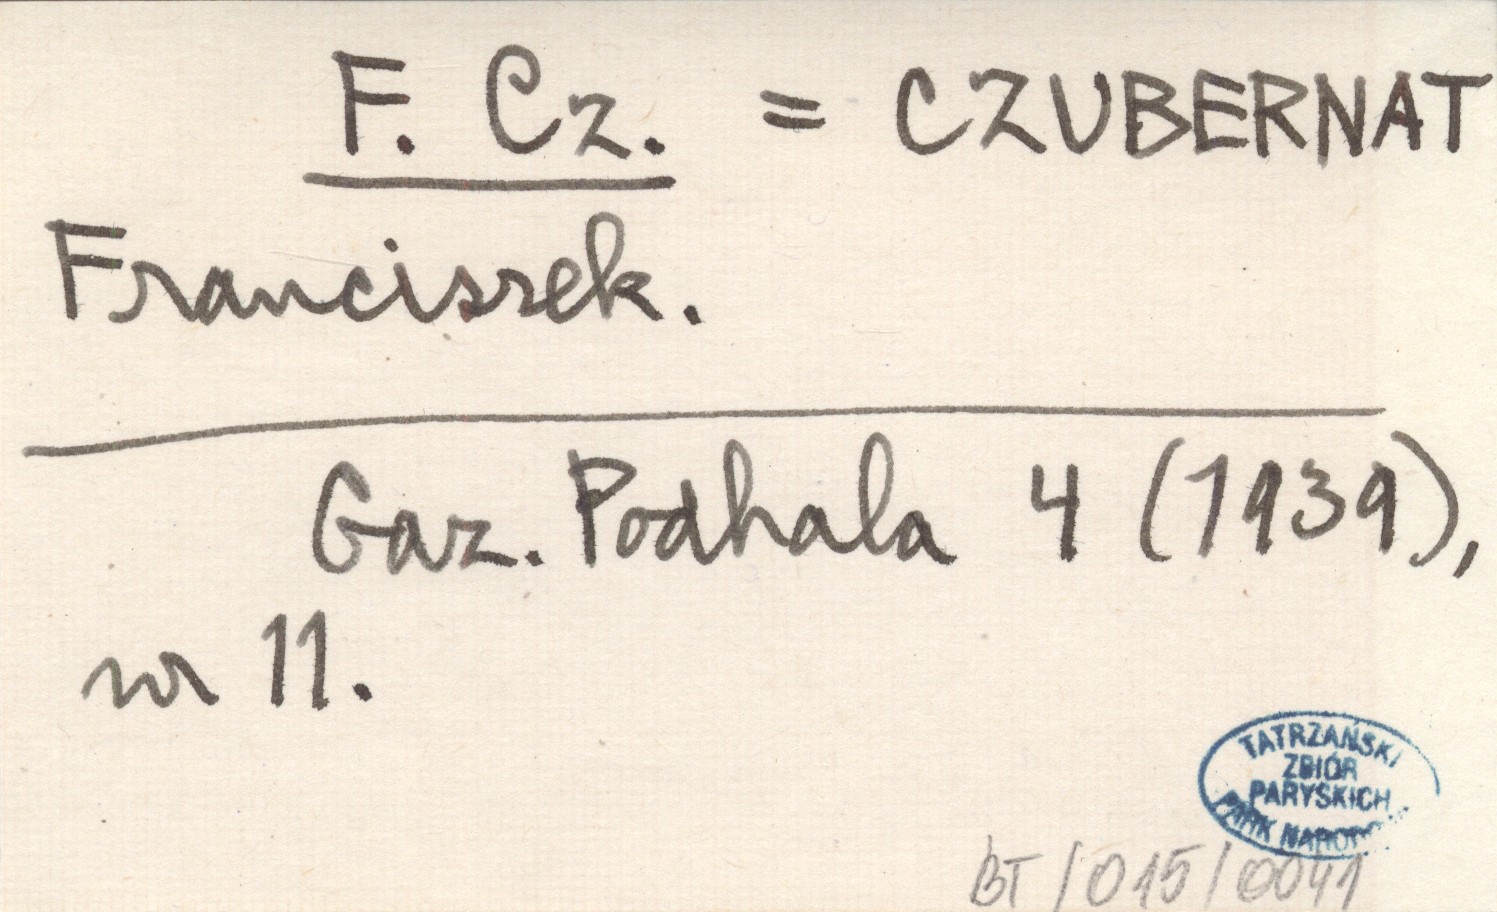 F. Cz. = CZUBERNAT
Franciszek.
Gaz. Podhala 4 (1939),
nr 11.
TATRZAŃSKI
ZBIÓR
PARYSKICH
PARK NARODOWY
BT/015/0041